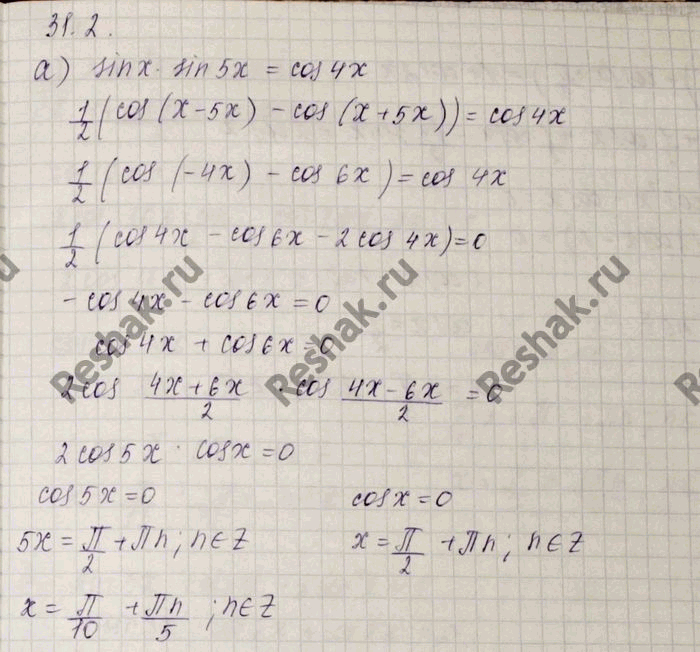 31.2.
а) sinx · sin5x = cos4x
1/2 (cos(x-5x) - cos(x+5x)) = cos4x
1/2 (cos(-4x) - cos6x) = cos 4x
1/2 (cos4x - cos6x - 2cos4x) = 0
-cos4x - cos6x = 0
cos4x + cos6x = 0
2cos (4x+6x)/2 · cos (4x-6x)/2 = 0
2cos5x · cosx = 0
cos5x = 0 cosx = 0
5x = π/2 + πn; n∈Z x = π/2 + πn; n∈Z
x = π/10 + πn/5; n∈Z
Reshak.ru
Reshak.ru
Reshak.ru